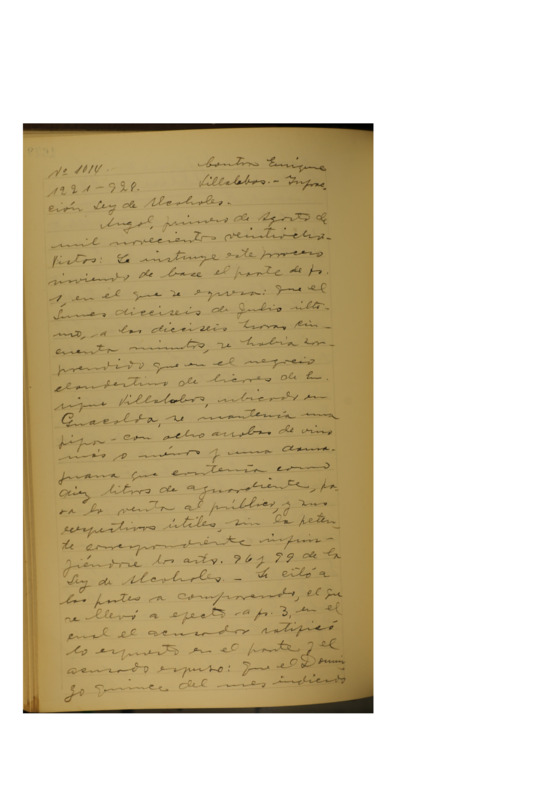 Nº 1014. Contra Enrique
1221-928. Villalobos.- Infrac
ción Ley de Alcoholes.-
Angol, primero de Agosto de
mil novecientos veintiocho.
Vistos: Se instruye este proceso
sirviendo de base el parte de fs.
1, en el que se expresa: que el
Lunes dieciseis de Julio últi-
mo, a las dieciseis horas cin-
cuenta minutos, se habia sor-
prendido que en el negocio
clandestino de licores de En-
rique Villalobos, ubicado en
Guacolda, se mantenia una
pipa con ocho arrobas de vino
más o ménos y una dama-
juana que contenia como
diez litros de aguardiente, pa-
ra la venta al público, y sus
respectivos útiles, sin la paten-
te correspondiente infrin-
giéndose los arts. 96 y 99 de la
Ley de Alcoholes.- Se citó a
las partes a comparendo, el que
se llevó a efecto a fs. 3, en el
cual el acusador ratificó
lo expuesto en el parte y el
acusado expuso: que el Domin
go quince del mes indicado